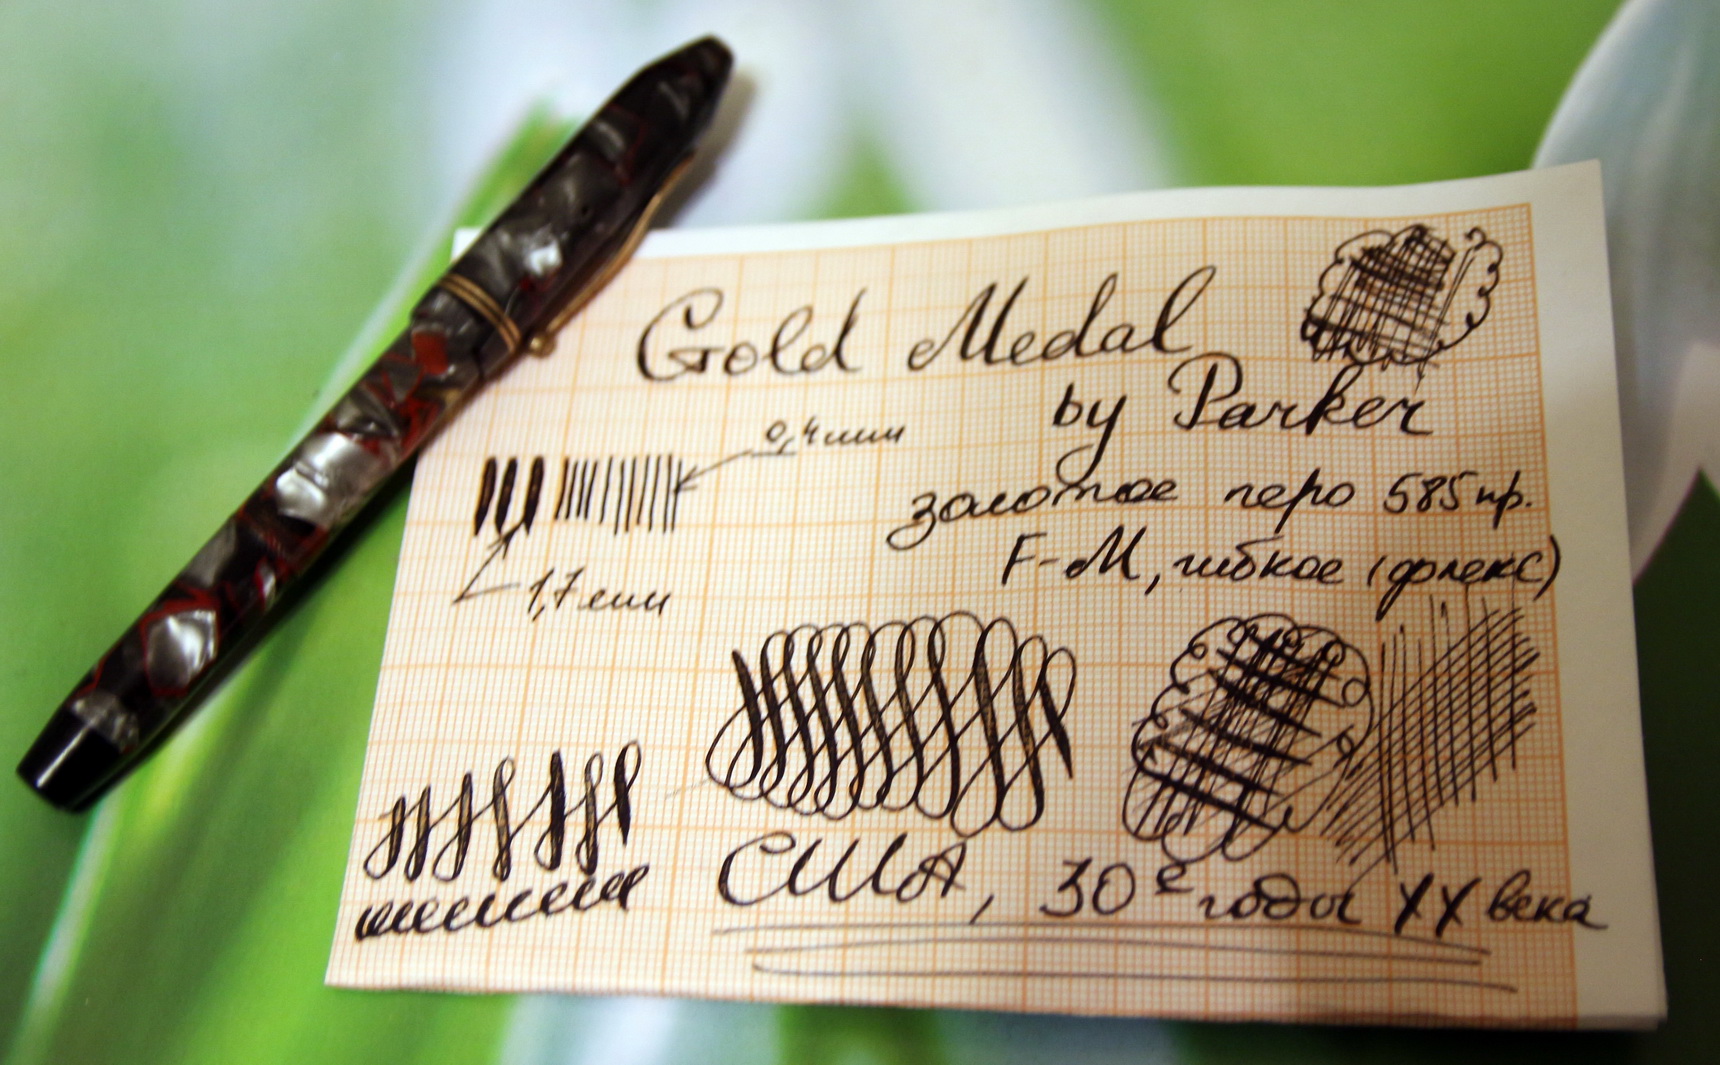 Gold Medal
by Parker
0,4мм
золотое перо 585 пр.
F-M, гибкое (флекс)
1,7мм
США, 30е годы XX века